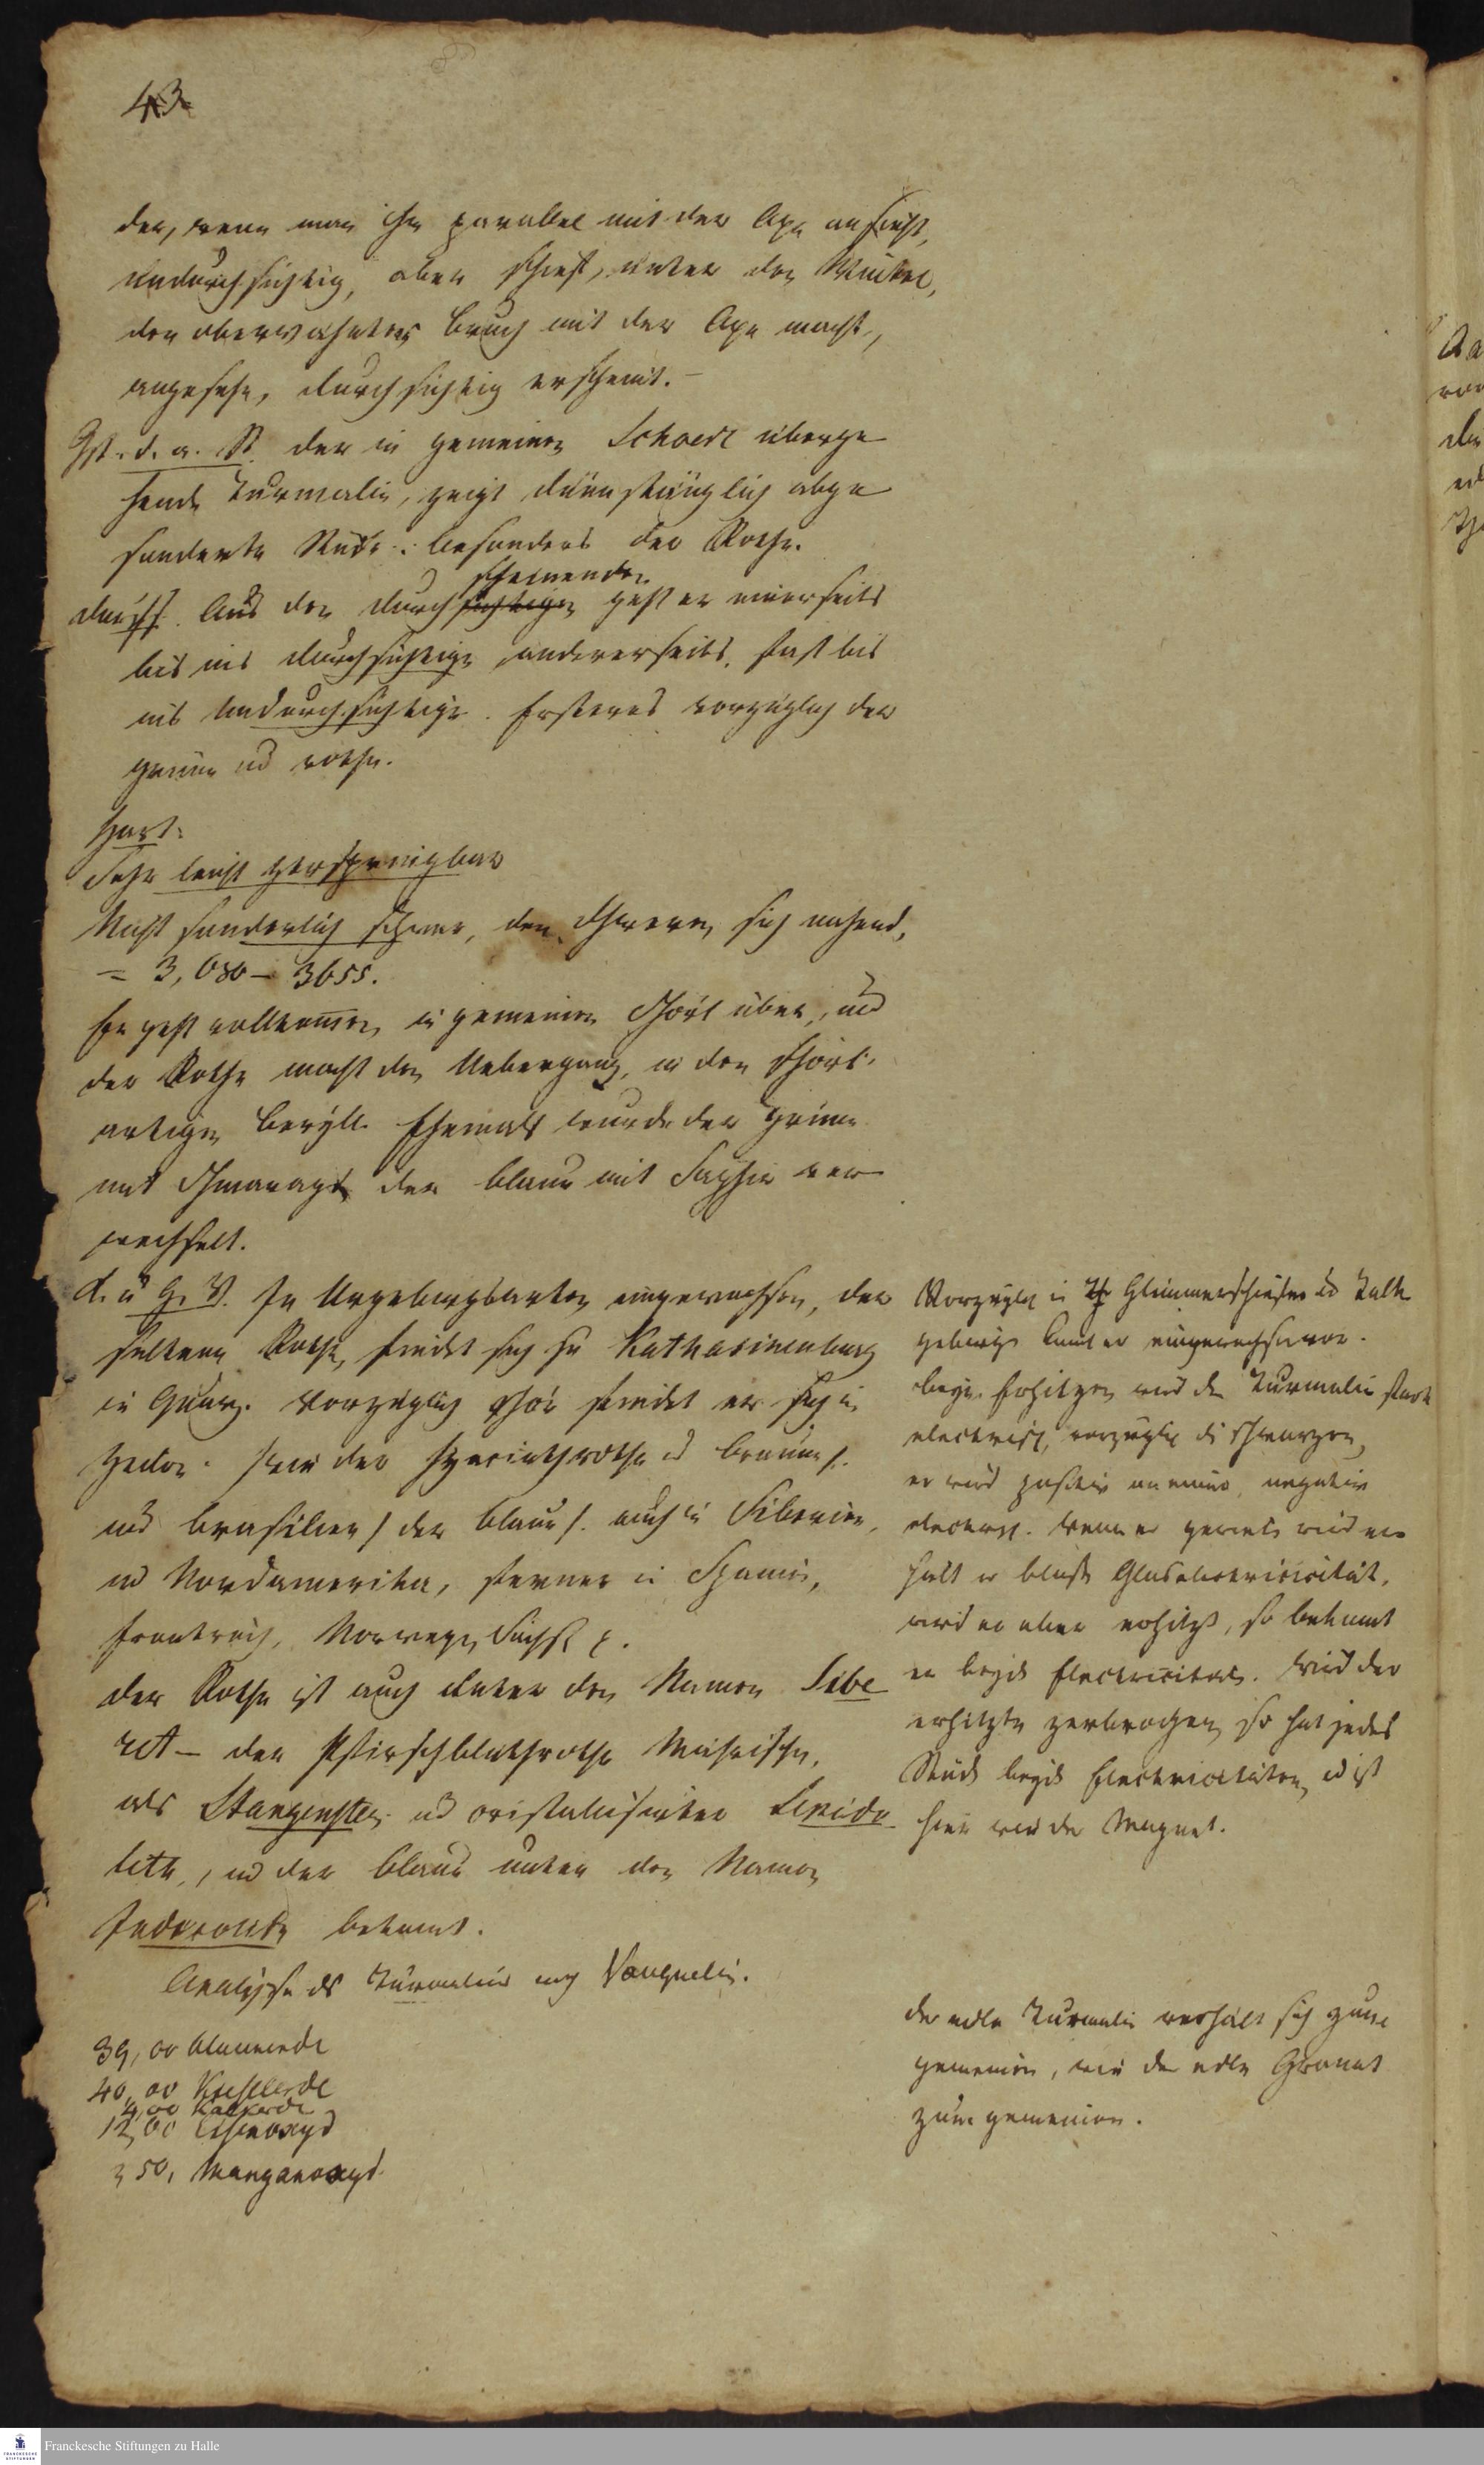 43
der, wenn man ihn parallel mit der Axe ansieht,
undurchsichtig, aber schief, unter den Winkel,
den oberwähnter Bruch mit der Axe macht,
angesehn, durchsichtig erscheint. –
Gst. d. a. St. der in gemeinen Schoerl überge
hende Turmalin, zeigt dünnstänglich abge
sonderte Stücke: besonders der Rothe.
scheinenden
durchs. Aus den durchsichtigen geht er einerseits
bis ins durchsichtige andererseits, fast bis
ins Undurchsichtige. Ersteres vorzüglich der
grüne und rothe.
Hart:
Sehr leicht zerspringbar
Nicht sonderlich schwer, den Schweren sich nahend,
= 3,080 – 3655.
Er geht vollkommen in gemeinen Schörl über, und
der Rothe macht den Uebergang, in den Schörl-
artigen Beryll. Ehemals wurde der Grüne
mit Schmaragd der blaue mit Saphir ver
wechselt.
F. u G. V. In Urgebirgsarten eingewachsen, der
seltene Rothe, findet sich zu Katharinenburg
in Quarz. Vorzüglich schön findet er sich in
Zeilon. / wie der hyacinthrothe und braune /.
und Brasilien / der blaue /. auch in Siberien,
und Nordamerika, ferner in Spanien,
Frankreich, Norwegen, Sachs. p.
der Rothe ist auch unter den Namen Sibe
rit – der Pfirschblüthrothe Mährische,
als Stangenstein und cristalisirter Lepido
lith, und der blaue unter den Namen
Indicolith bekannt.
Analyse des Turmalins nach Vauquelin.
39,00 Alaunerde
40,00 Kieselerde
4,00 Kalkerde
12,00 Eisenoxyd
2 50, Manganoxyd.
Vorzüglich in Glimmerschiefer und Talk
gebirge kommt er eingewachsen vor.
beym Erhitzen wird der Turmalin stark
electrisch, vorzüglich die schwarzen,
er wird positiv an einem, negativ
electrisch. Wenn er gerieben wird er
hält er bloße Glaselectricität,
wird er aber erhitzt, so bekommt
er beyde Electricitäten. Wird der
erhitzte zerbrochen, so hat jedes
Stück beyde Electricitäten, und ist
hier wie der Magnet.
der edle Turmalin verhält sich zum
gemeinen, wie der edle Granat
zum gemeinen.
Franckesche Stiftungen zu Halle